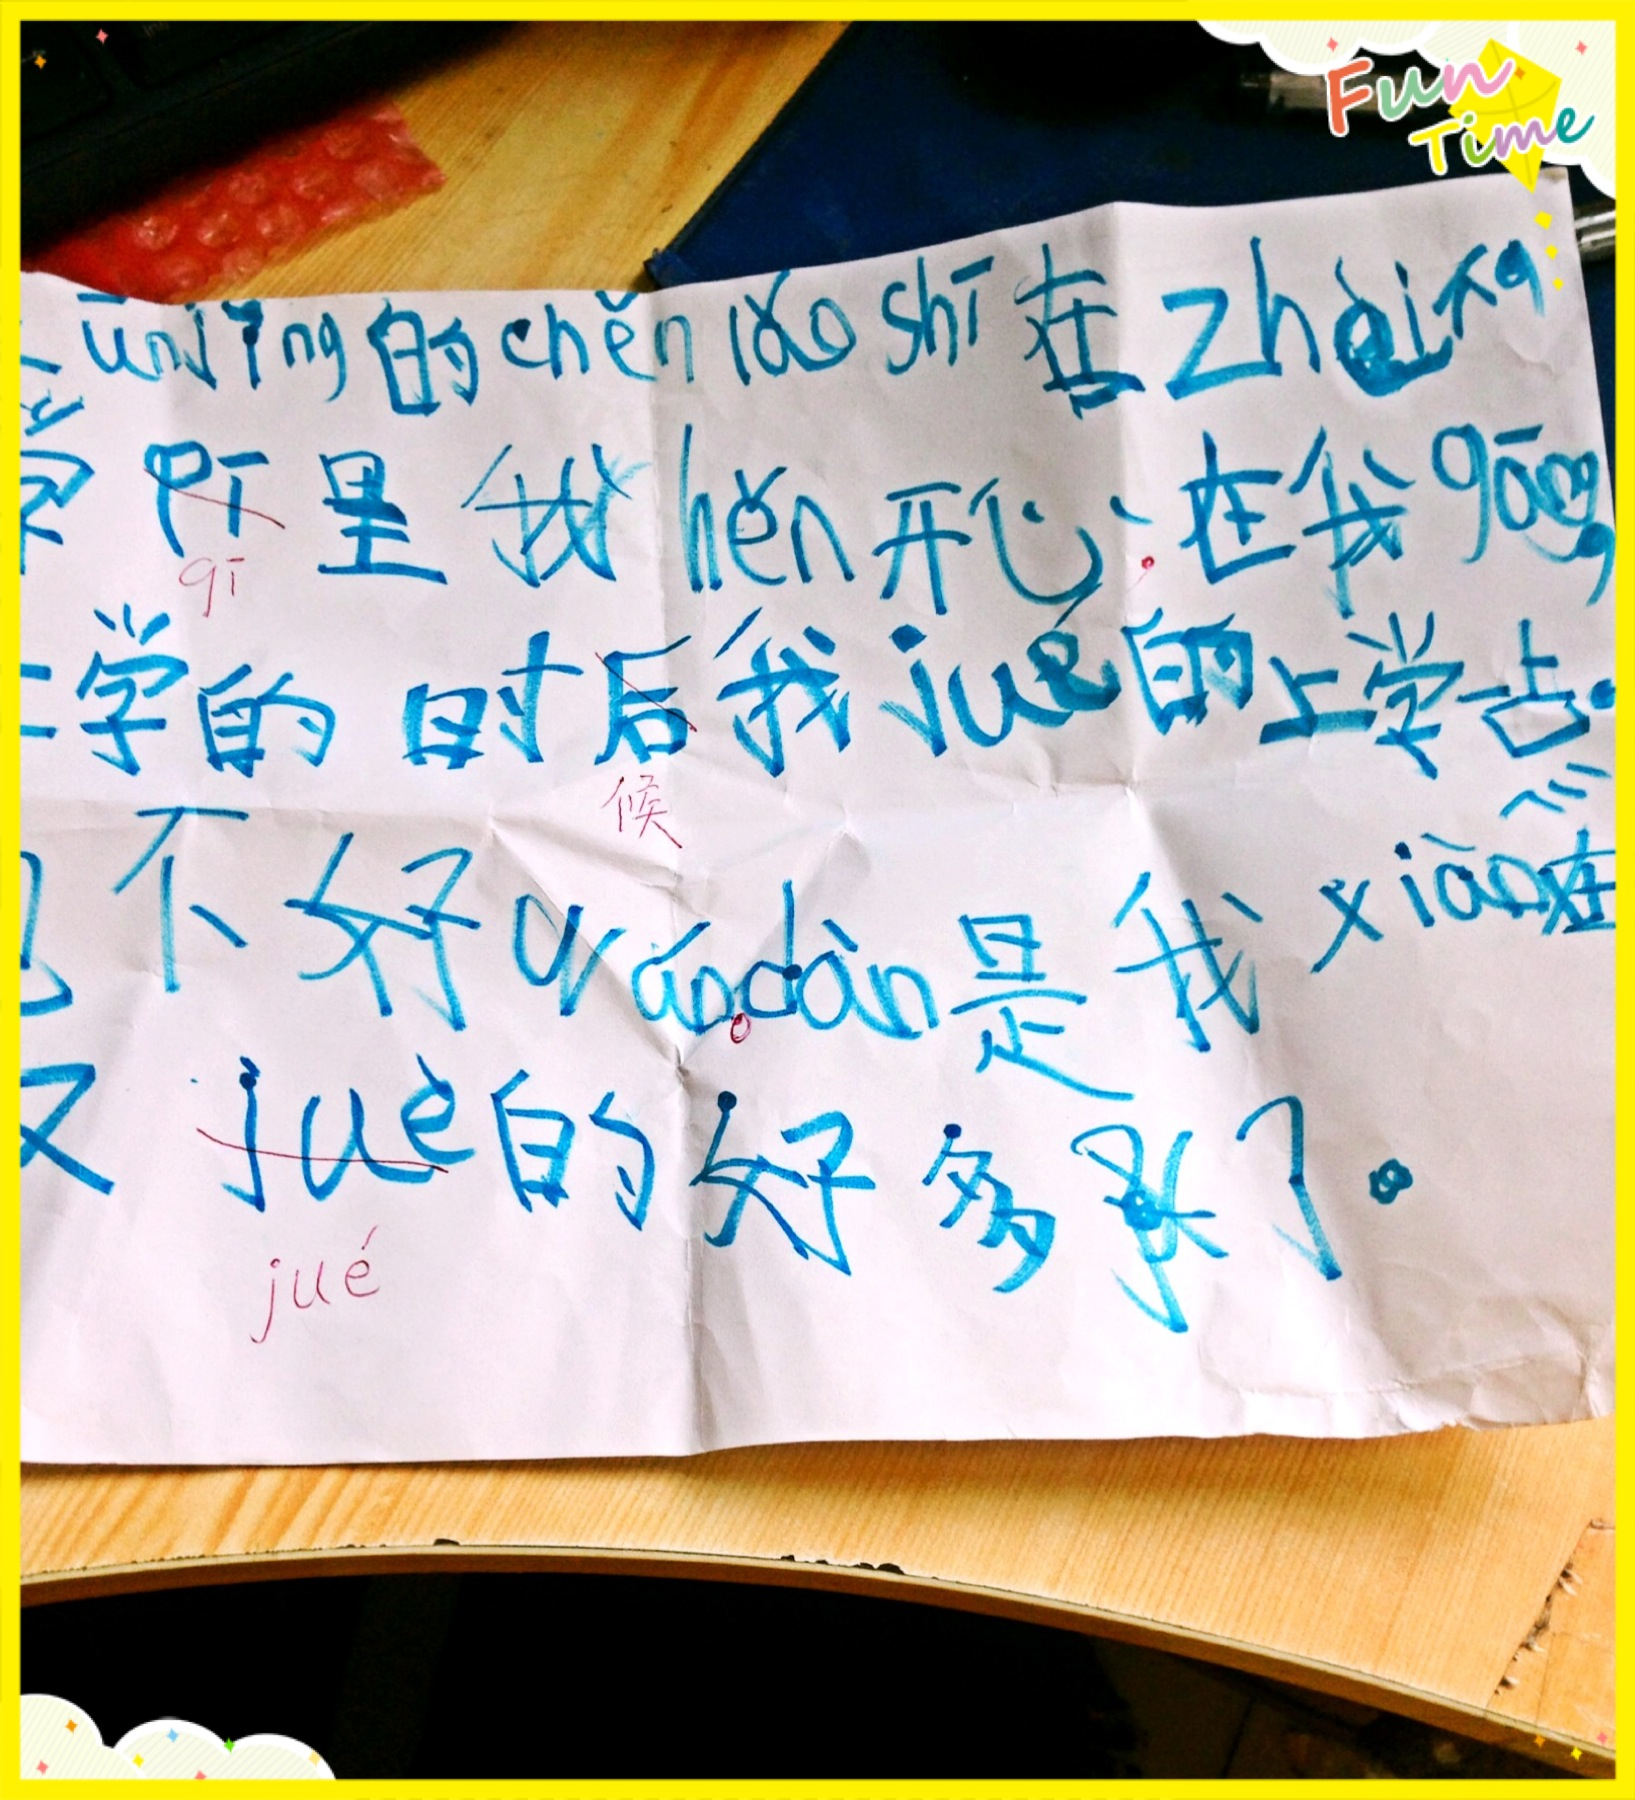 Fun
Time
ūnjīng的chěn lǎo shī在zhài xq
学pī里我hěn开心.在我gāng,
qī
上学的时后我jué的上学一点.
候
不好wán.dàn是我xiàn在
又juè的好多了.
jué